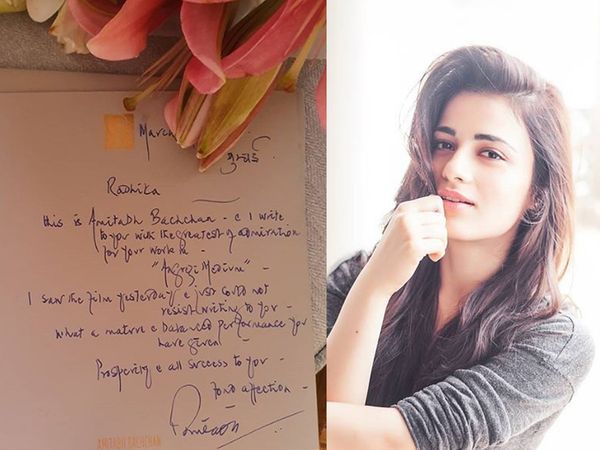 March
मुम्बई
Radhika
this is Amitabh Bachchan - e I write
to you with the greatest of admiration
for your work in -
"Angrezi Medium" -
I saw the film yesterday e just could not
resist writing to you -
what a mature e balanced performance you
have given
Prosperity e all success to you -
fond affection -
AMITABH BACHCHAN